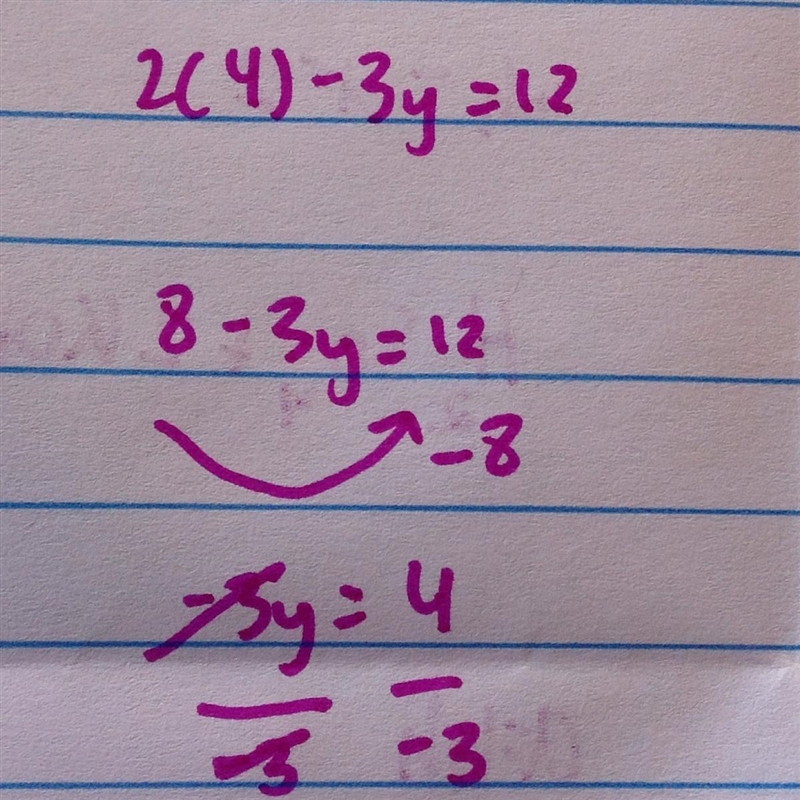 2(4)-3y=12
8-3y=12
-8
-3y=4
-3 -3